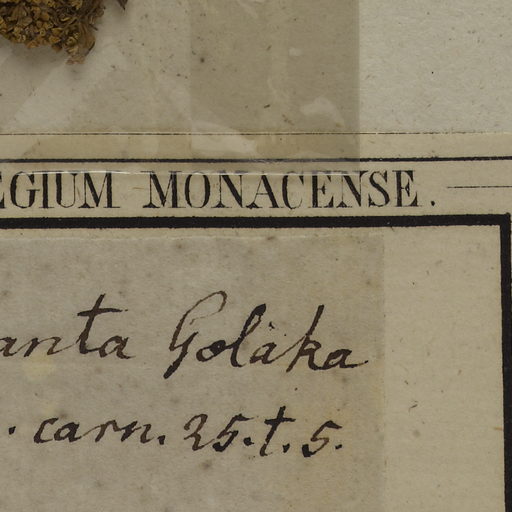 EGIUM MONACENSE.
anta Golaka
. carn. 25. t. 5.